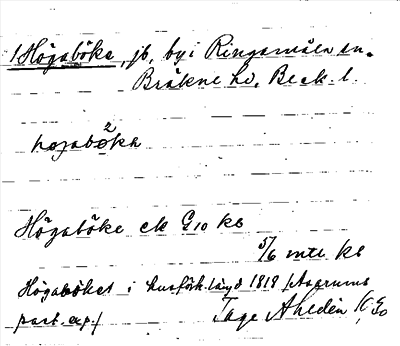 1 Högaböke, jb, by i Ringamåla sn.
Bräkne hd, Bleck. l.
2
hø̨gabøka
Högaböke ek G10 kb
5/6 mtl kb
Högaböket i husförh.längd 1818 /Asarums
past. exp./
Tage Ahldén